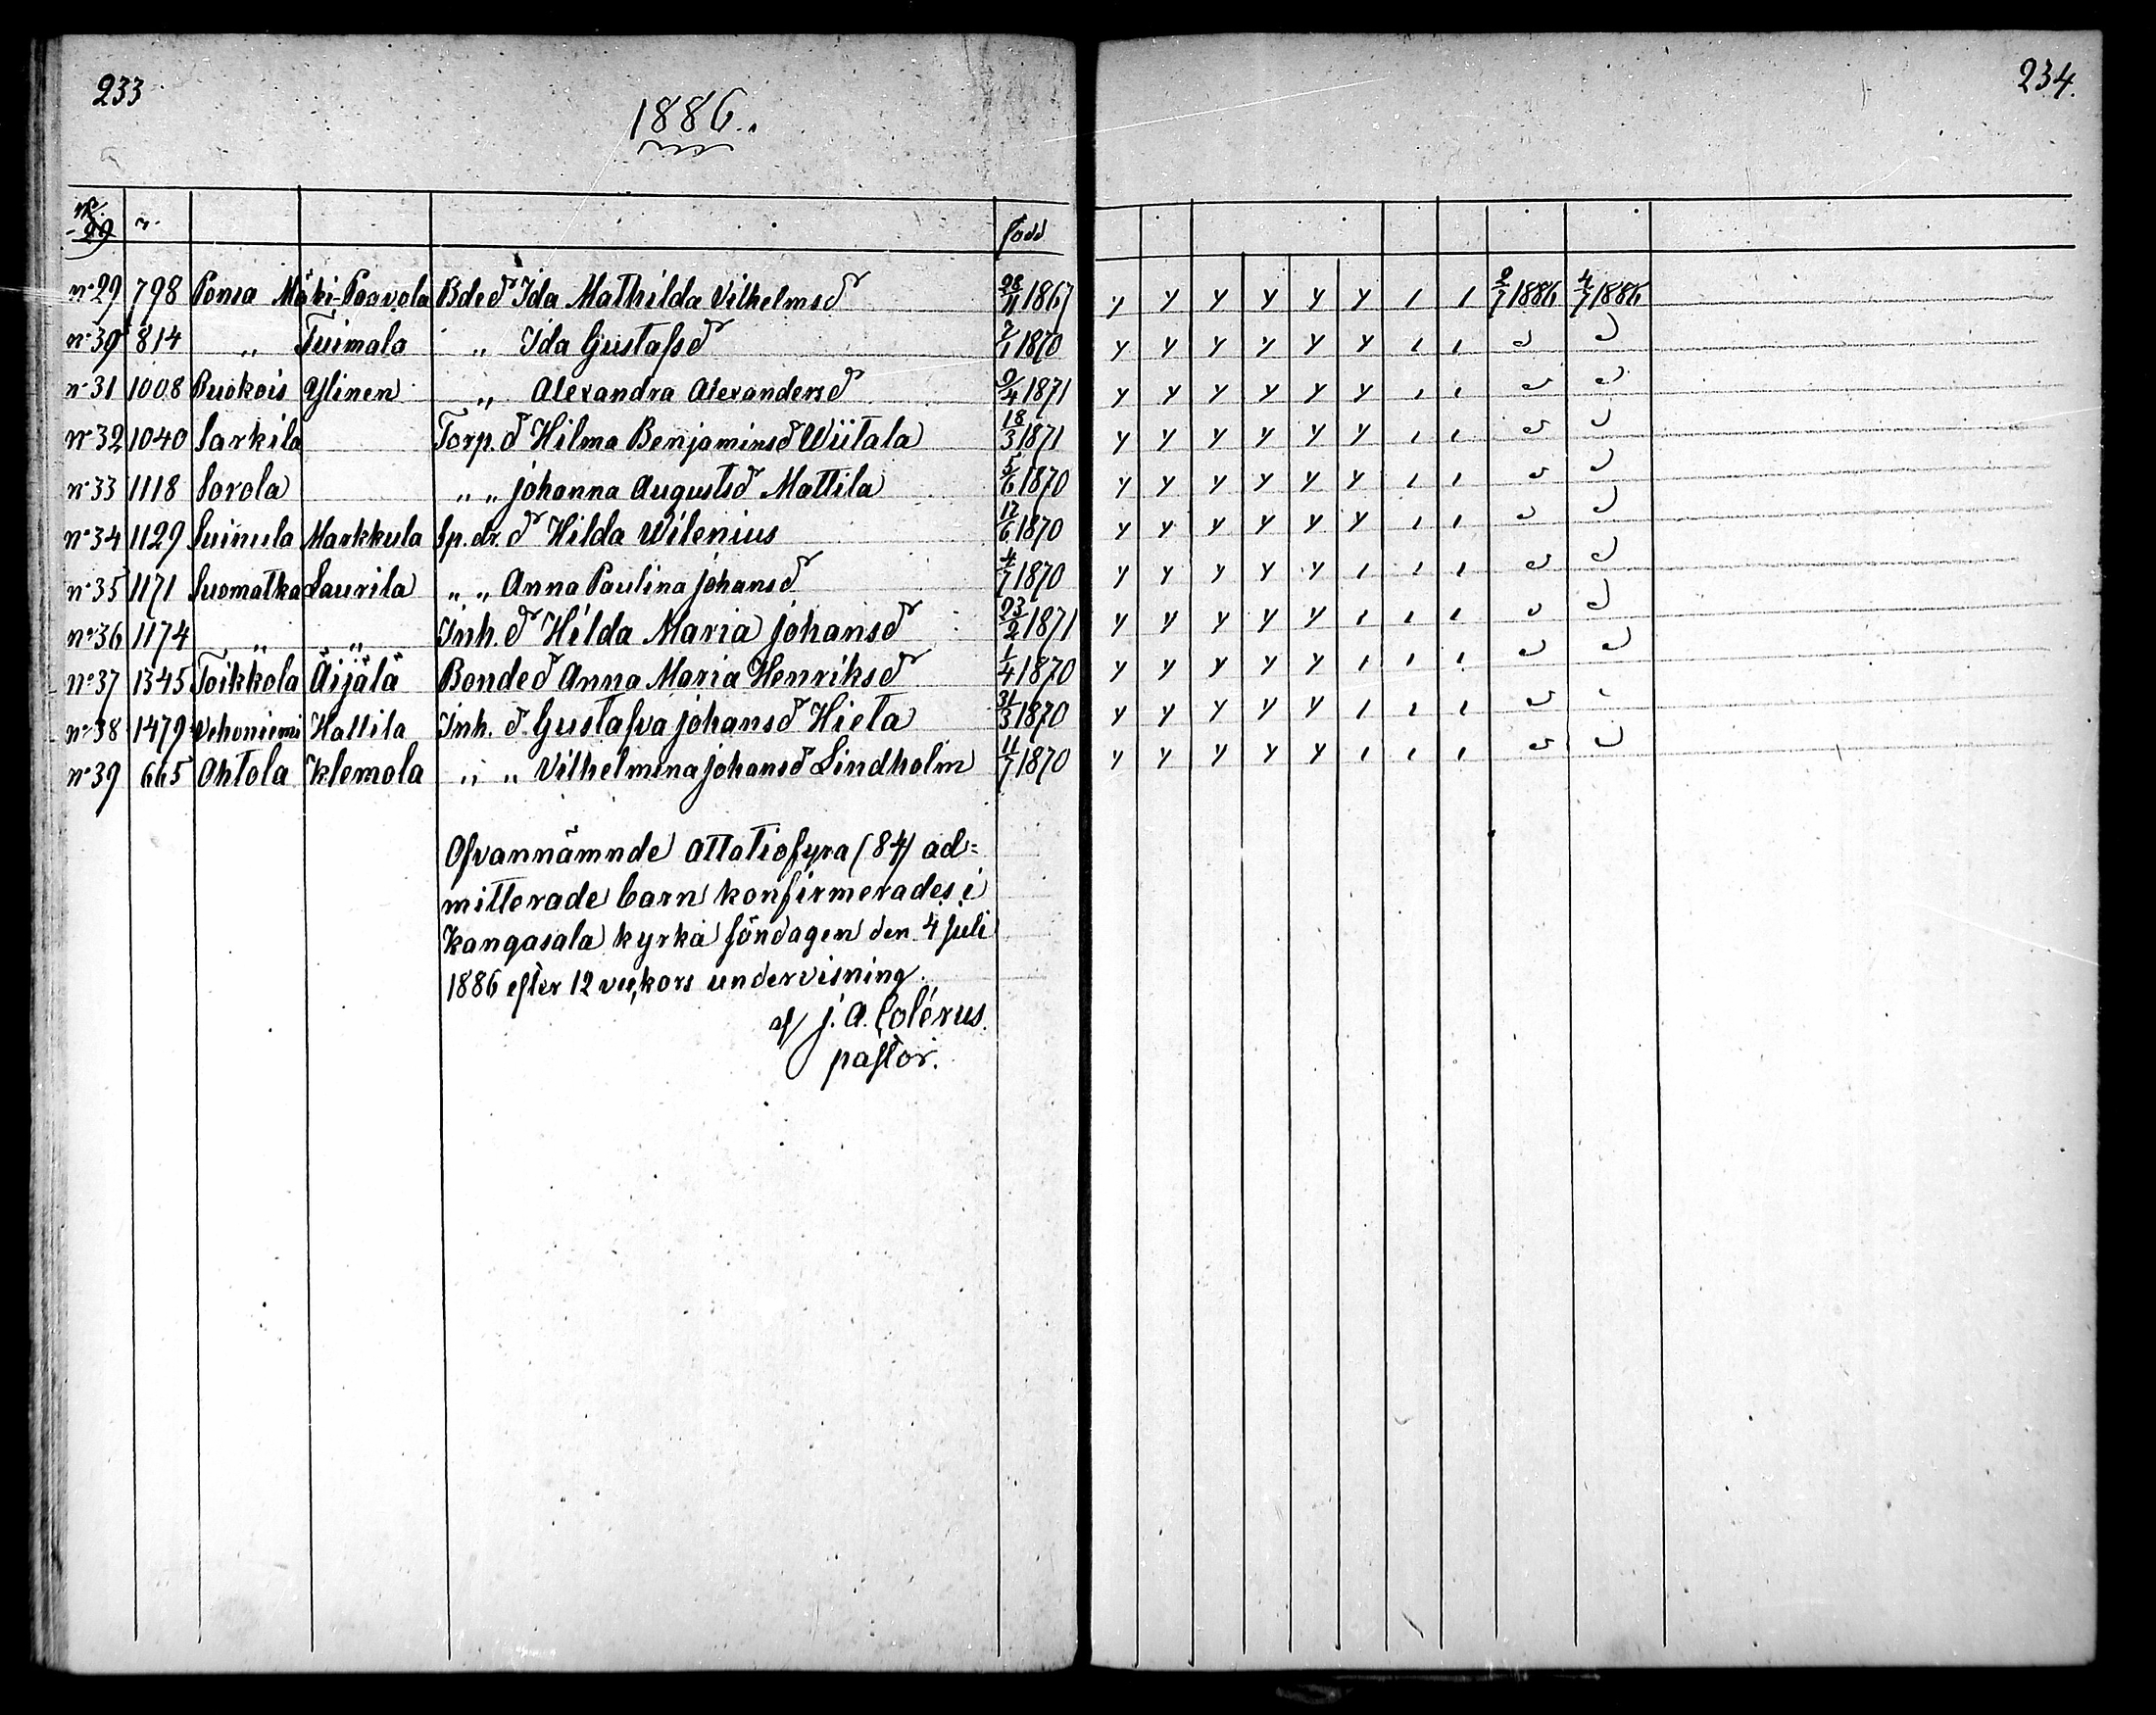 233
1886.
234.
n° 29 n. född
n° 29 798 Ponsa Mäki-Paavola Bded:r Ida Mathilda Vilhelmsd:r 28/11 1867 y y y y y y 1 1 2/7 1886 4/7 1886
n° 30 814 „ Tuimala „ Ida Gustafsd:r 7/1 1870 y y y y y y 1 1 „ „
n° 31 1008 Ruokois Ylinen „ Alexandra Alexandersd:r 9/4 1871 y y y y y y 1 1 „ „
n° 32 1040 Sarkila Torp. d Hilma Benjaminsd Wiitala 18/3 1871 y y y y y y 1 1 „ „
n° 33 1118 Sorola „ „ Johanna Augustsd Mattila 5/6 1870 y y y y y y 1 1 „ „
n° 34 1129 Suinula Markkula Sp. dr. d:r Hilda Wilenius 12/6 1870 y y y y y y 1 1 „ „
n° 35 1171 Suomatka Laurila „ „ Anna Paulina Johansd:r 4/7 1870 y y y y y 1 1 1 „ „
n° 36 1174 „ „ Inh. d:r Hilda Maria Johansd:r 23/2 1871 y y y y y 1 1 1 „ „
n° 37 1345 Toikkola Äijälä Bonded Anna Maria Henriksd:r 1/4 1870 y y y y y 1 1 1 „ „
n° 38 1479 Vehoniemi Hallila Inh. d. Gustafva Johansd Hieta 31/3 1870 y y y y y 1 1 1 „ „
n° 39 665 Ohtola Klemola „ „ Vilhelmina Johansd Lindholm 11/7 1870 y y y y y 1 1 1 „ „
Ofvannämnde åttatiofyra (84) ad=
mitterade barn konfirmerades i
Kangasala kyrka söndagen den 4 Juli
1886 efter 12 veckors undervisning
af J. A. Colérus.
pastor.